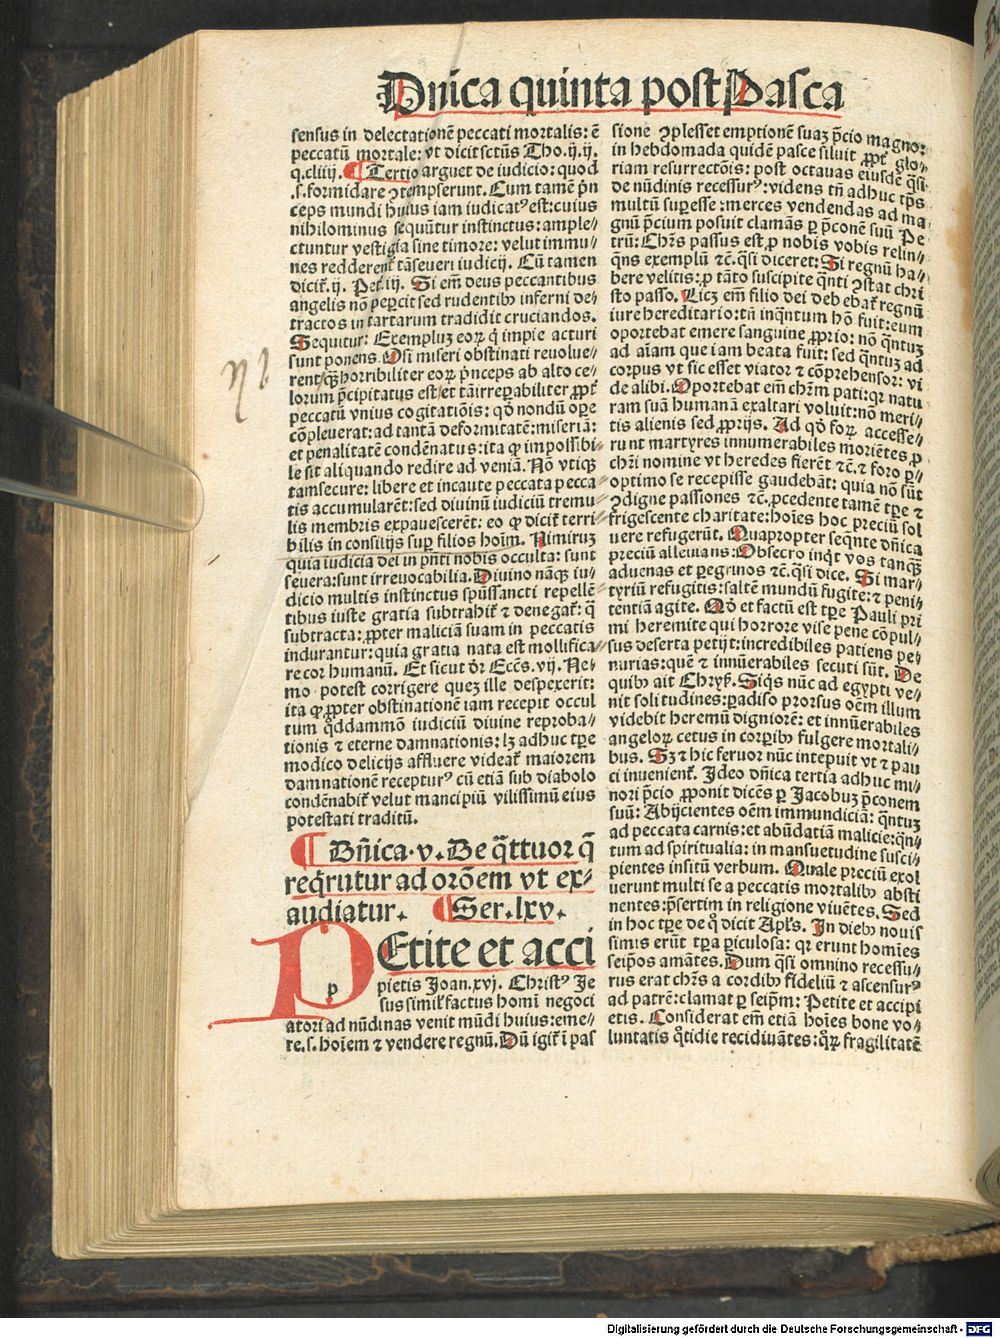 Dnica quinta post Pasca
sensus in delectationē peccati mortalis: ē
peccatū mortale: vt dicit sctūs Tho. ij. ij.
q. cliiij. ¶ Tertio arguet de iudicio: quod
.s. formidare ꝯtempserunt. Cum tamē pn̄
ceps mundi huius iam iudicatꝰ est: cuius
nihilominus sequūtur instinctus: ample⸗
ctuntur vestigia sine timore: velut immu⸗
nes redderent̄ tā seueri iudicij. Cū tamen
dicit̄. ij. Pet̄. iij. Si em̄ deus peccantibus
angelis nō peꝑcit sed rudentibꝫ inferni de⸗
tractos in tartarum tradidit cruciandos.
Sequitur: Exempluꝫ eoꝝ q̇ impie acturi
sunt ponens. O si miseri obstinati reuolue⸗
rent/qꝫ̄ horribiliter eoꝝ p̄nceps ab alto ce⸗
lorum p̄cipitatus est/et tā irreꝑabiliter ꝓpt̄
peccatū vnius cogitatiōis: qō nondū oꝑe
cōpleuerat: ad tantā deformitatē: miseriā:
et penalitatē condēnatus: ita ꝙ impossibi⸗
le sit aliquando redire ad veniā. Nō vtiqꝫ
tam secure: libere et incaute peccata pecca
tis accumularēt: sed diuinū iudiciū tremu⸗
lis membris expauescerēt: eo ꝙ dicit̄ terri⸗
bilis in consilijs suꝑ filios hoīm. Nimiruꝫ
quia iudicia dei in pn̄ti nobis occulta: sunt
seuera: sunt irreuocabilia. Diuino nāqꝫ iu⸗
dicio multis instinctus spūssancti repellē⸗
tibus iuste gratia subtrahit̄ ⁊ denegat̄: q̄
subtracta: ꝓpter maliciā suam in peccatis
indurantur: quia gratia nata est mollifica⸗
re cor humanū. Et sicut dr̄ Eccs̄. vij. Ne⸗
mo potest corrigere queꝫ ille despexerit:
ita ꝙ ꝓpter obstinationē iam recepit occul
tum qddammō iudiciū diuine reproba⸗
tionis ⁊ eterne damnationis: lꝫ adhuc tꝑe
modico delicijs affluere videat̄ maiorem
damnationē recepturꝰ cū etiā sub diabolo
condēnabit̄ velut mancipiū vilissimū eius
potestati traditū.
¶ Dn̄ica. v. De q̄ttuor q̄
reqrūtur ad orōem vt ex⸗
audiatur. ¶ Ser. lxv.
PEtite et acci
p
pietis Joan. xvj. Christꝰ Je
sus simil̄ factus homī negoci
atori ad nūdinas venit mūdi huius: eme⸗
re. s. hoīem ⁊ vendere regnū. Dū igit̄ ī pas
sione ꝯplesset emptionē suaꝫ p̄cio magno:
in hebdomada quidē pasce siluit ꝓpt̄ glo⸗
riam resurrectōis: post octauas eiusdē q̄si
de nūdinis recessurꝰ: videns tn̄ adhuc tꝑs
multū suꝑesse: merces vendendas ad ma
gnū p̄cium posuit clamās ꝑ p̄conē suū Pe
trū: Chr̄s passus est ꝓ nobis vobis relin⸗
qn̄s exemplū ⁊c̄. q̄si diceret: Si regnū ha⸗
bere velitis: ꝓ tāto suscipite qn̄ti ꝯstat chri
sto passo. Licꝫ em̄ filio dei debebat̄ regnū
iure hereditario: tn̄ inqn̄tum hō fuit: eum
oportebat emere sanguine ꝓprio: nō qn̄tuꝫ
ad aīam que iam beata fuit: sed qn̄tuꝫ ad
corpus vt sic esset viator ⁊ cōprehensor: vi
de alibi. Oportebat em̄ chr̄m pati: qꝛ natu
ram suā humanā exaltari voluit: nō meri⸗
tis alienis sed ꝓprijs. Ad qō foꝝ accesse⸗
runt martyres innumerabiles moriētes ꝓ
chr̄i nomine vt heredes fierēt ⁊c̄. ⁊ foro ꝑ⸗
optimo se recepisse gaudebāt: quia nō sūt
ꝯdigne passiones ⁊c̄. ꝓcedente tamē tꝑe ⁊
frigescente charitate: hoīes hoc preciū sol
uere refugerūt. Quapropter seqn̄te dn̄ica
preciū alleuians: Obsecro inqt̄ vos tanqꝫ̄
aduenas et ꝑegrinos ⁊c̄. q̄si dice. Si mar⸗
tyriū refugitis: saltē mundū fugite: ⁊ peni⸗
tentiā agite. Qō et factū est tꝑe Pauli pri
mi heremite qui horrore vise pene cōpul⸗
sus deserta petijt: incredibiles patiens pe⸗
nurias: quē ⁊ innūerabiles secuti sūt. De
quibꝫ ait Chryſ. Siqs nūc ad egypti ve⸗
nit solitudines: ꝑadiso prorsus oēm illum
videbit heremū digniorē: et innūerabiles
angeloꝝ cetus in corꝑibꝫ fulgere mortali⸗
bus. Sꝫ ⁊ hic feruor nūc intepuit vt ⁊ pau
ci inuenient̄. Ideo dn̄ica tertia adhuc mi⸗
nori p̄cio ꝓponit dicēs ꝑ Jacobuꝫ p̄conem
suū: Abijcientes oēm immundiciā: qn̄tuꝫ
ad peccata carnis: et abūdatiā malicie: qn̄⸗
tum ad spiritualia: in mansuetudine susci⸗
pientes insitū verbum. Quale preciū exol
uerunt multi se a peccatis mortalibꝫ absti
nentes: p̄sertim in religione viuētes. Sed
in hoc tꝑe de q̄ dicit Apl̄s. In diebꝫ nouis
simis erūt tꝑa ꝑiculosa: qꝛ erunt homīes
seip̄os amātes. Dum q̄si omnino recessu⸗
rus erat chr̄s a cordibꝫ fideliū ⁊ ascensurꝰ
ad patrē: clamat ꝑ seip̄m: Petite et accipi
etis. Considerat em̄ etiā hoīes bone vo⸗
luntatis q̄tidie recidiuātes: qꝛ fragilitatē
Digitalisierung gefördert durch die Deutsche Forschungsgemeinschaft - DFG